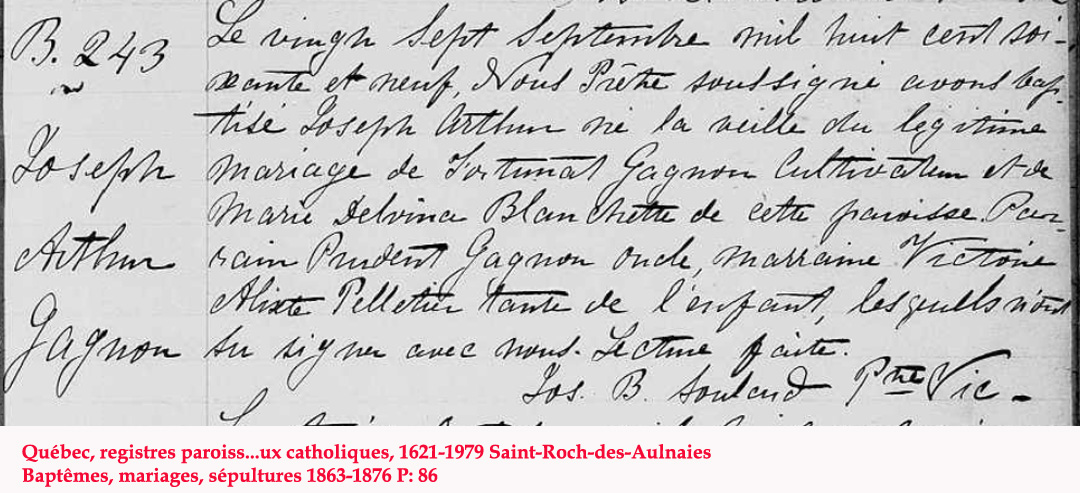 B. 243
Joseph
Arthur
Gagnon
Le vingh Sept Septembre mil huit cent soi-
xante et neuf, Nous Prêtre soussigné avons bap-
tisé Joseph Arthur né la veille du légitime
mariage de Fortunat Gagnon Cultivateur et de
Marie Delvina Blanchette de cette paroisse. Par-
rain Prudent Gagnon oncle, marraine Victoire
Alixte Pelletier tante de l'enfant, lesquells n'ont
su signer avec nous. Lecture faite.
Jos. B. Soulard Ptre Vic-
Québec, registres paroiss...ux catholiques, 1621-1979 Saint-Roch-des-Aulnaies
Baptêmes, mariages, sépultures 1863-1876 P: 86